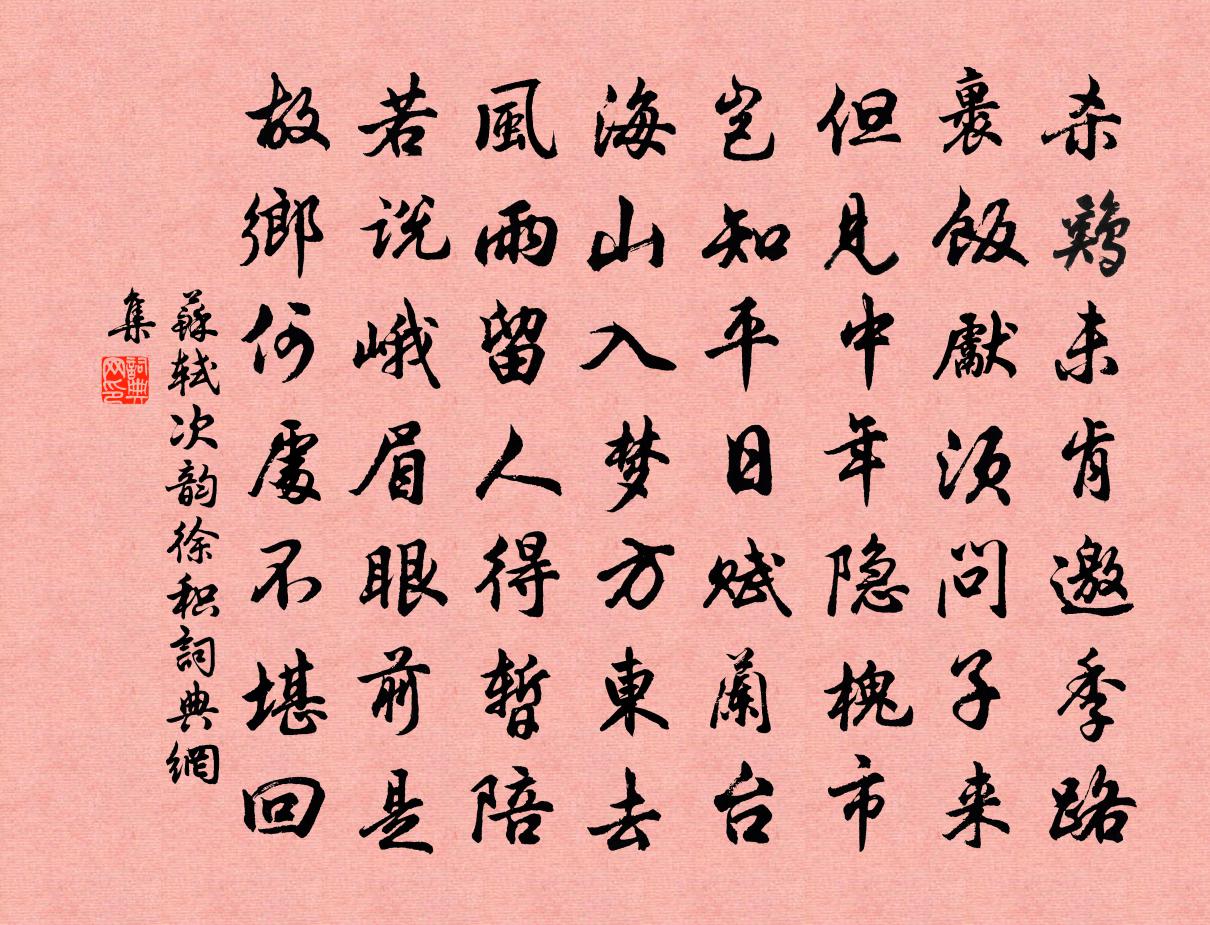 杀鷄未肯邀季路
裹飯獻须問子来
但見中年隐槐市
岂知平日赋蘭台
海山入梦方東去
風雨留人得暫陪
若説峨眉眼前是
故鄉何處不堪回
蘇轼次韵徐积詞典網
集
詞典网印